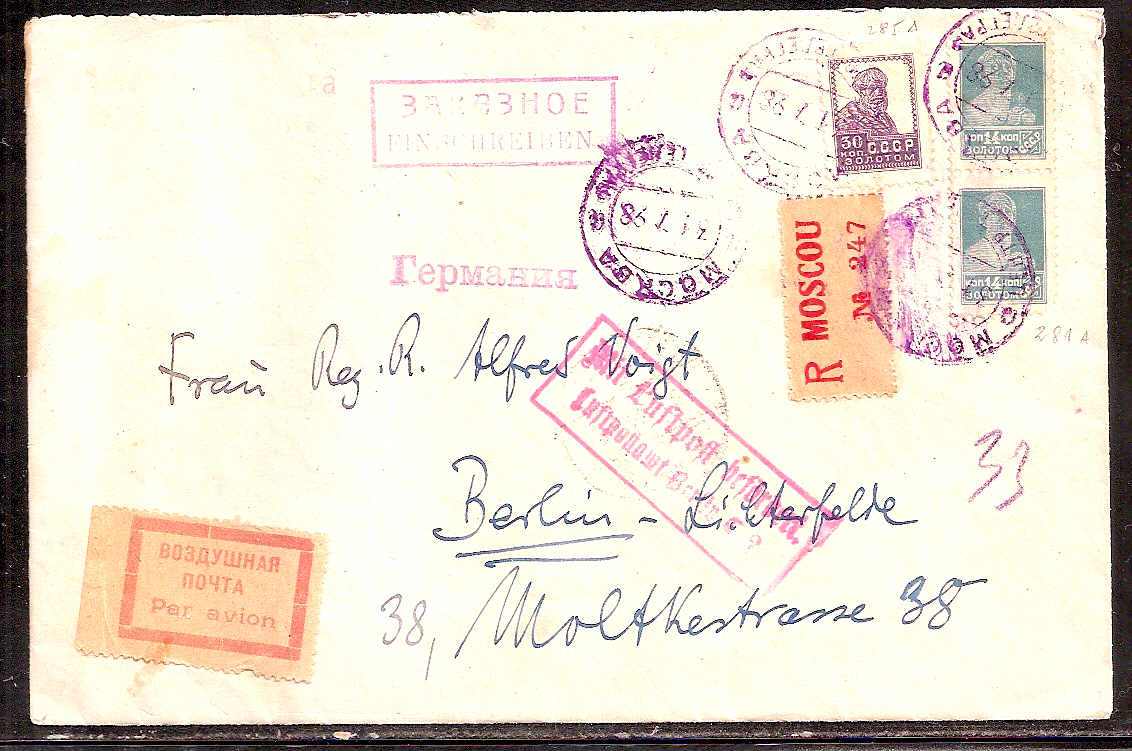 ЗАКАЗНОЕ
EINSCHREIBEN
285A
30
КОП.
СССР
ЗОЛОТОМ
КОП 14 КОП
ЗОЛОТОМ
СССР
КОП 14 КОП
ЗОЛОТОМ
281A
МОСКВА
МОСКВА
R MOSCOU
№ 247
Германия
Frau Reg. R. Alfred Voigt
Mit Luftpost befördert
Luftpostamt Berlin C 2
33
Berlin - Lichterfelde
38, Moltkestrasse 38
ВОЗДУШНАЯ
ПОЧТА
Par avion